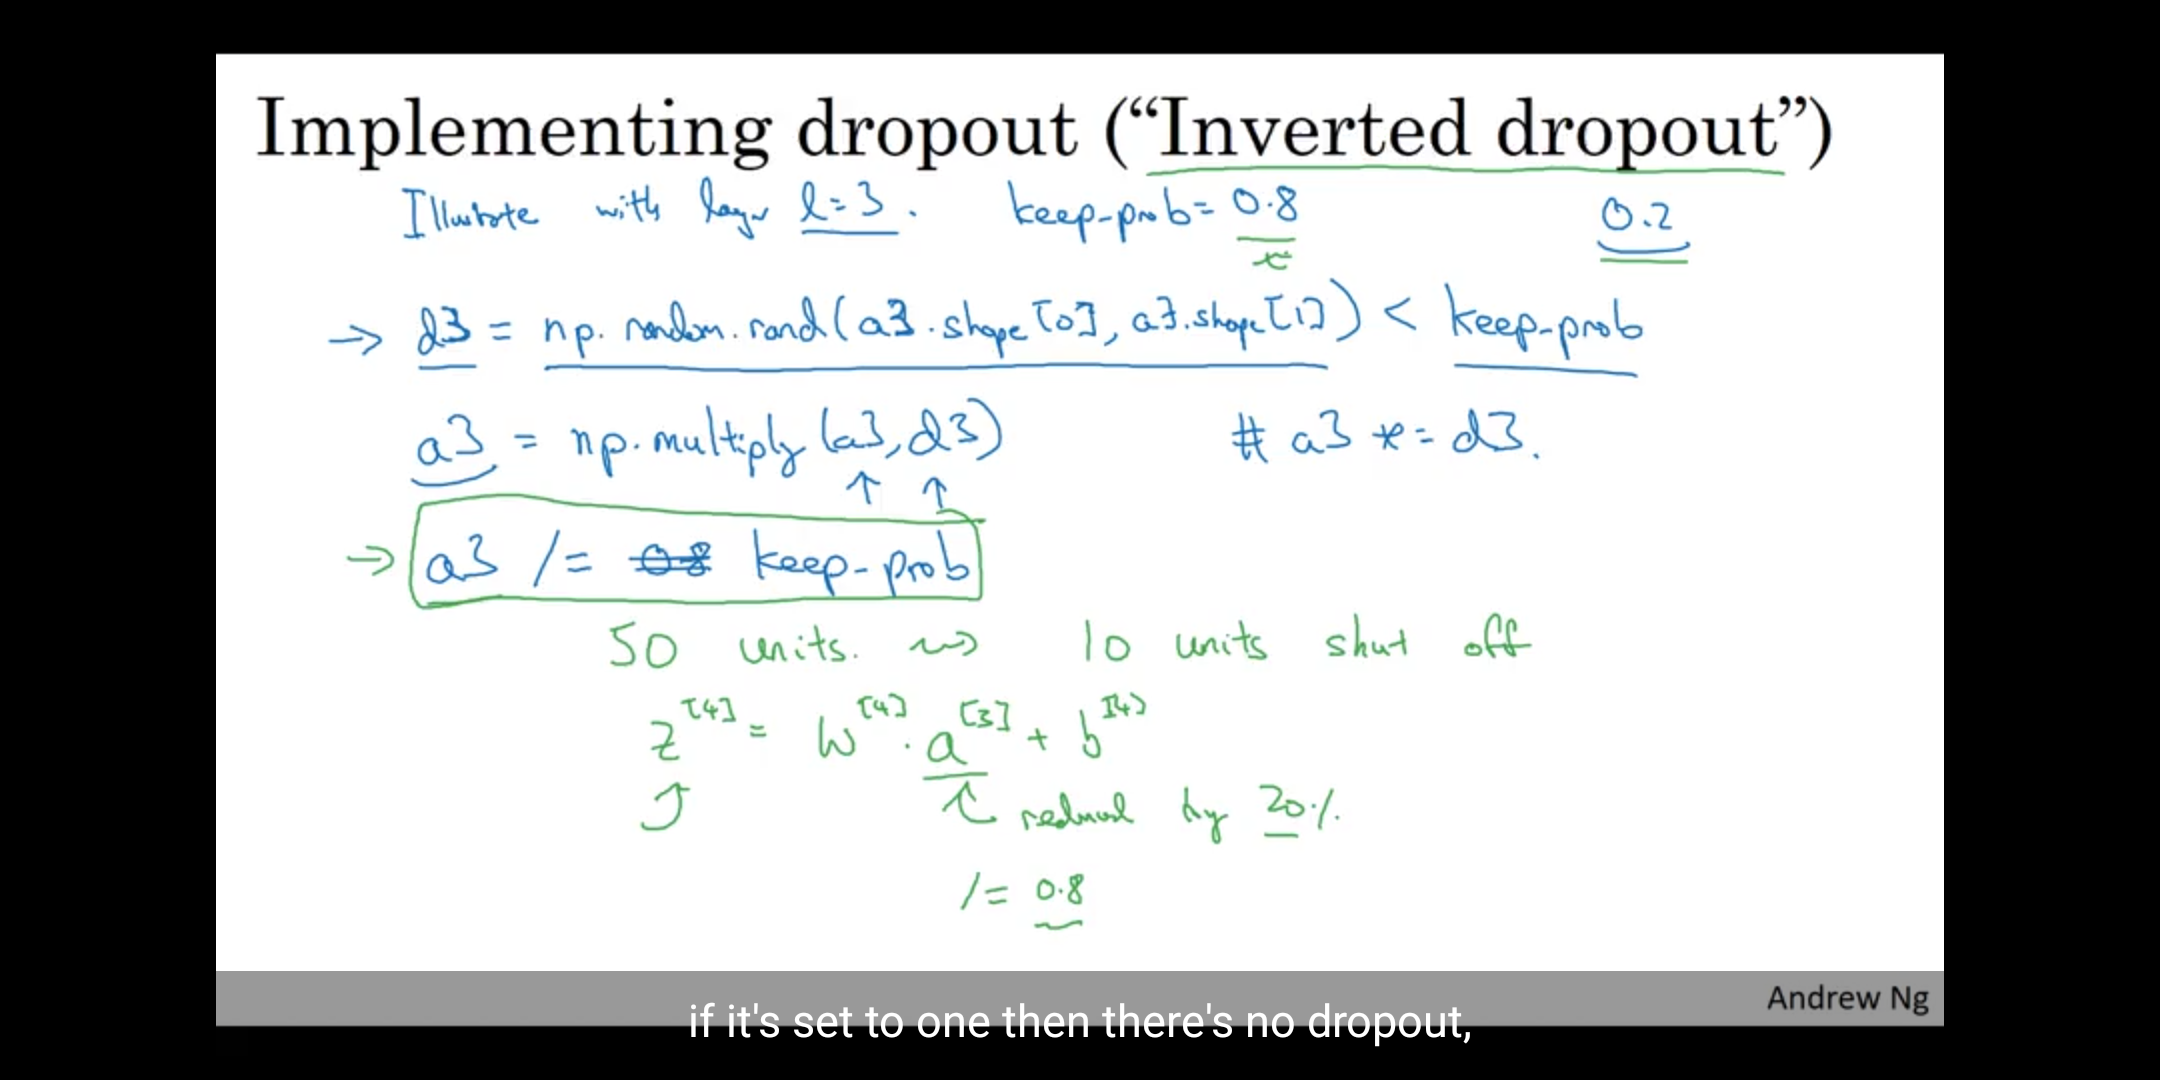 Implementing dropout (“Inverted dropout”)
Illustrate with layer l=3. keep-prob= 0.8 0.2
→ d3 = np.random.rand(a3.shape[0], a3.shape[1]) < keep-prob
a3 = np.multiply(a3, d3) # a3 *= d3.
→ a3 /= 0.8 keep-prob
50 units. ⇝ 10 units shut off
z^[4] = W^[4] · a^[3] + b^[4]
reduced by 20%.
/= 0.8
Andrew Ng
if it's set to one then there's no dropout,